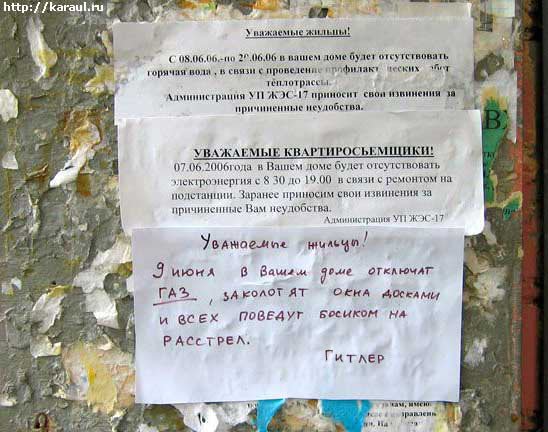 http://karaul.ru
Уважаемые жильцы!
С 08.06.06.-по 29.06.06 в вашем доме будет отсутствовать
горячая вода , в связи с проведение профилактических работ
теплотрассы.
Администрация УП ЖЭС-17 приносит свои извинения за
причиненные неудобства.
УВАЖАЕМЫЕ КВАРТИРОСЬЕМЩИКИ!
07.06.2006года в Вашем доме будет отсутствовать
электроэнергия с 8 30 до 19.00 в связи с ремонтом на
подстанции. Заранее приносим свои извинения за
причиненные Вам неудобства.
Администрация УП ЖЭС-17
Уважаемые жильцы!
9 июня в Вашем доме отключат
ГАЗ, заколотят окна досками
и всех поведут босиком на
расстрел.
Гитлер